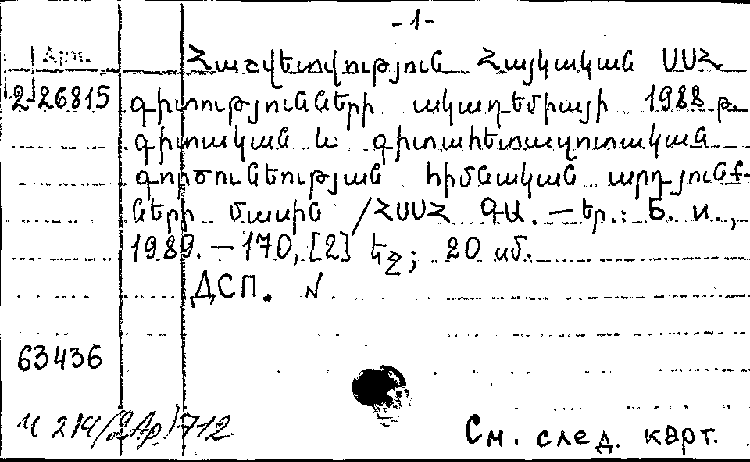 -1-
Арм. Հաշվետվություն Հայկական ՍՍՀ
2-26815 գիտությունների ակադեմիայի 1988 թ.
գիտական և գիտահետազոտական
գործունեության հիմնական արդյունք-
ների մասին /ՀՍՍՀ ԳԱ. — Եր.: Б. и.,
1989. — 170, [2] եջ; 20 սմ.
ДСП. N
63436
И 214(2Ар)712
См. след. карт.